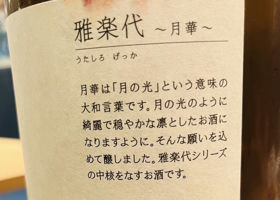 雅楽代 ～月華～
うたしろ げっか
月華は「月の光」という意味の
大和言葉です。月の光のように
綺麗で穏やかな凛としたお酒に
なりますように。そんな願いを込
めて醸しました。雅楽代シリーズ
の中核をなすお酒です。